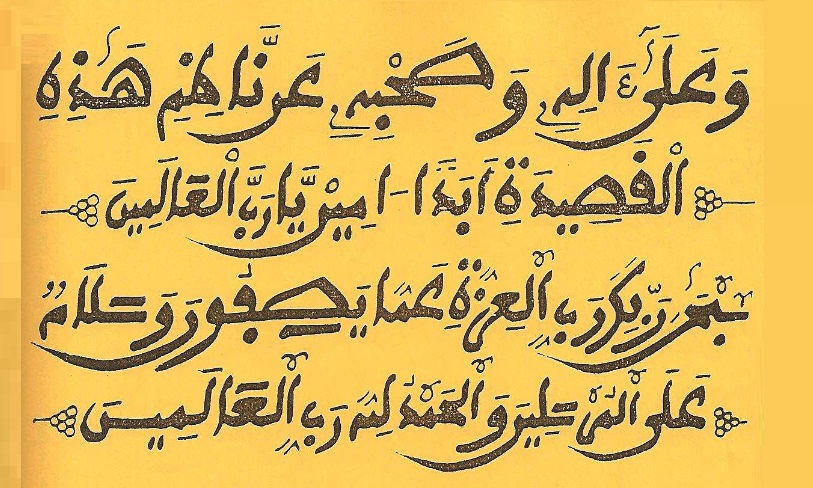 وَعَلَىٰ ءَالِهِ وَصَحْبِهِ عَن نَّاظِمِ هَٰذِهِ
الْقَصِيدَةِ اَبَدًا - امِينْ يَّا رَبَّ الْعَالَمِينَ
سُبْحَٰنَ رَبِّكَ رَبِّ الْعِزَّةِ عَمَّا يَصِفُونَ وَسَلَامٌ
عَلَى الْمُرْسَلِينَ وَالْحَمْدُ لِلَّهِ رَبِّ الْعَالَمِينَ